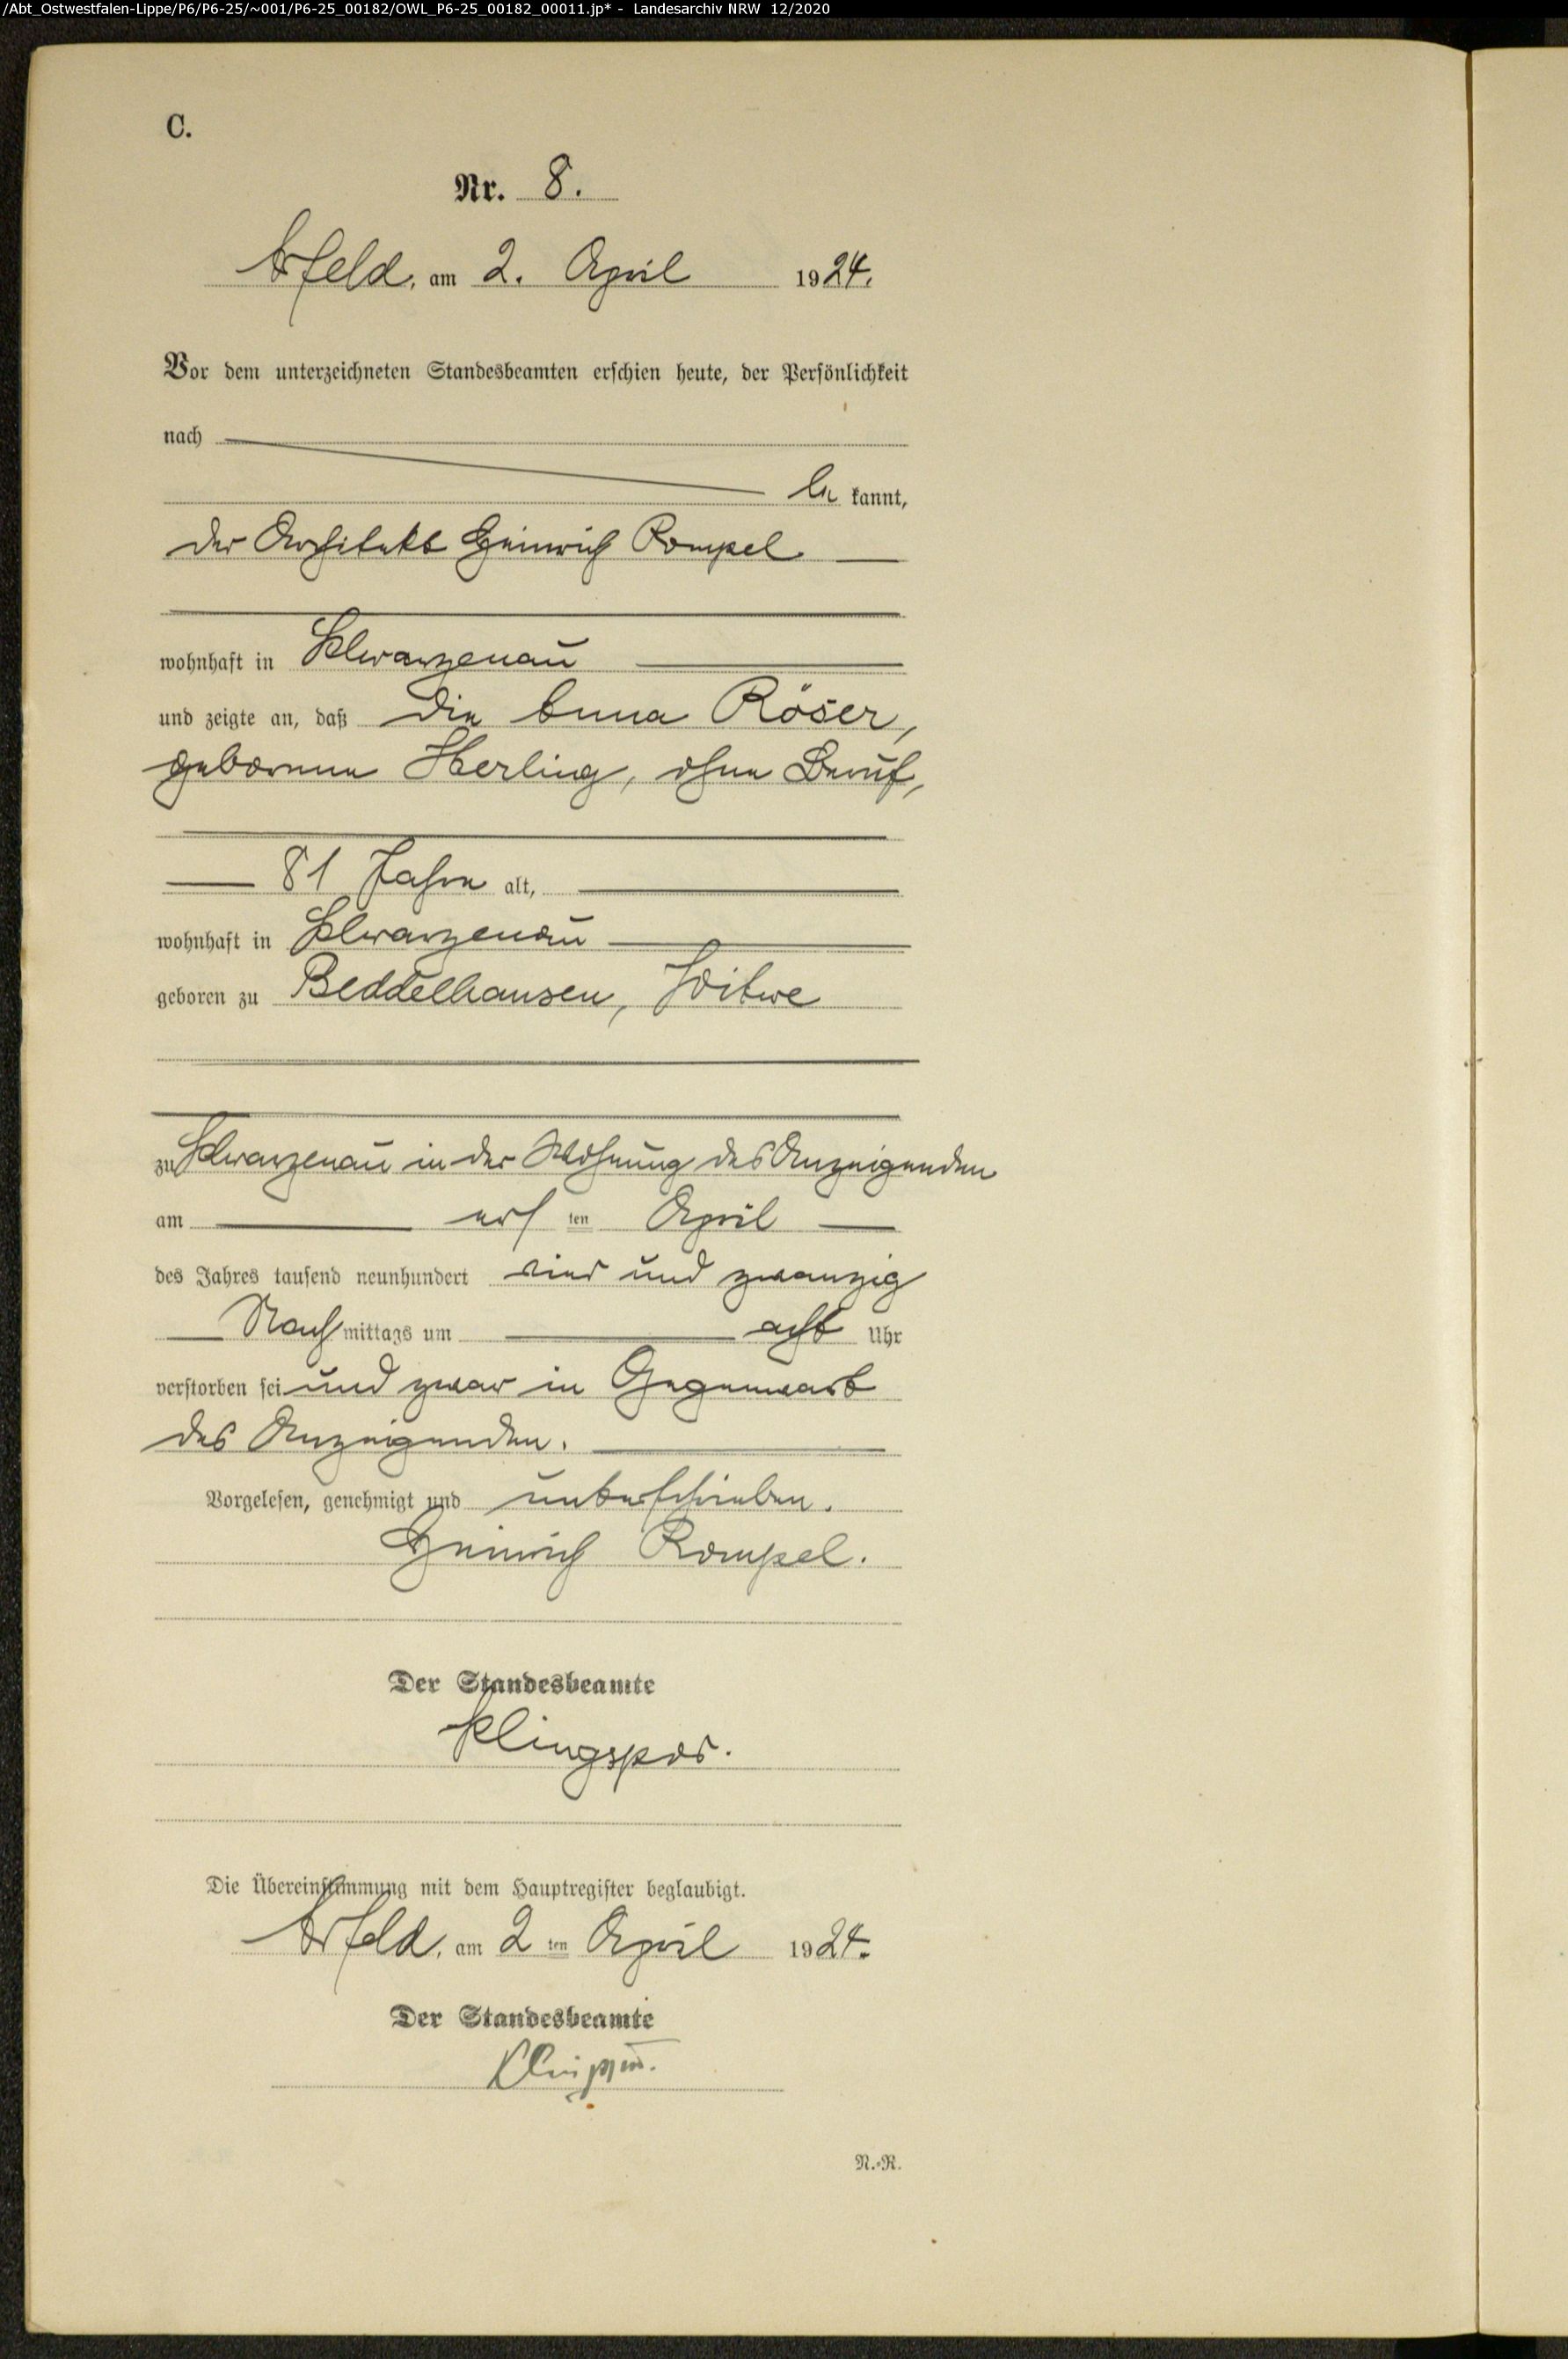 /Abt_Ostwestfalen-Lippe/P6/P6-25/~001/P6-25_00182/OWL_P6-25_00182_00011.jp* - Landesarchiv NRW 12/2020
C.
Nr. 8.
Arfeld, am 2. April 1924.
Vor dem unterzeichneten Standesbeamten erschien heute, der Persönlichkeit
nach
be kannt,
der Architekt Heinrich Rompel
wohnhaft in Schwarzenau
und zeigte an, daß die Anna Röser,
geborene Herling, ohne Beruf,
81 Jahre alt,
wohnhaft in Schwarzenau
geboren zu Beddelhausen, Witwe
zu Schwarzenau in der Wohnung des Anzeigenden
am ers ten April
des Jahres tausend neunhundert vier und zwanzig
Nach mittags um acht Uhr
verstorben sei und zwar in Gegenwart
des Anzeigenden.
Vorgelesen, genehmigt und unterschrieben.
Heinrich Rompel.
Der Standesbeamte
Klingspor.
Die Übereinstimmung mit dem Hauptregister beglaubigt.
Arfeld, am 2 ten April 1924.
Der Standesbeamte
Klingspor.
N.-R.